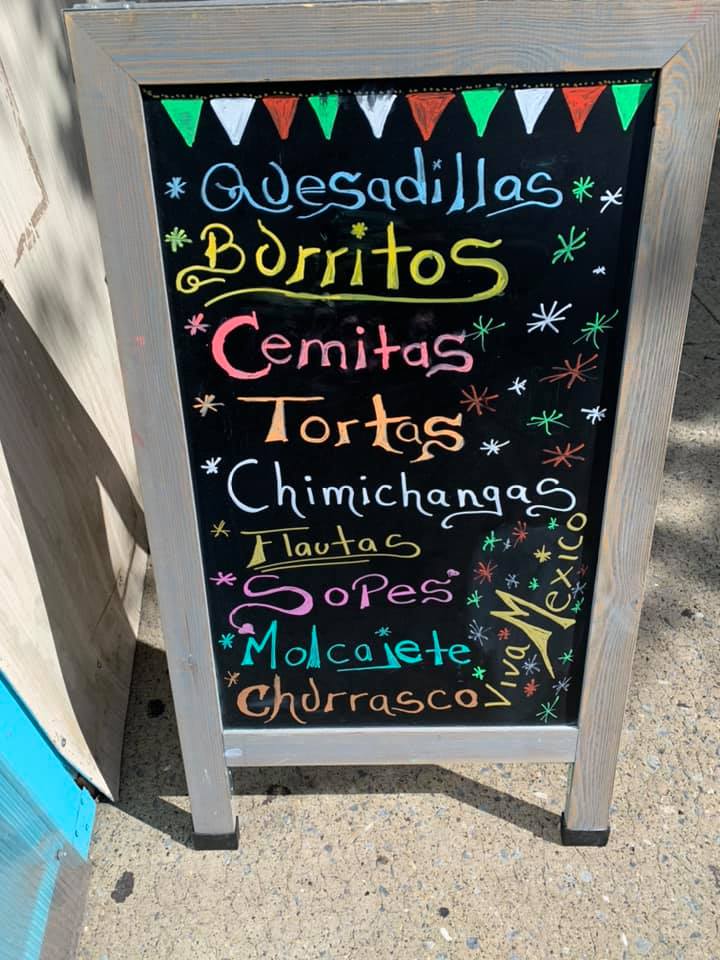 Quesadillas
Burritos
Cemitas
Tortas
Chimichangas
Flautas
Sopes
Molcajete
Churrasco
Viva Mexico